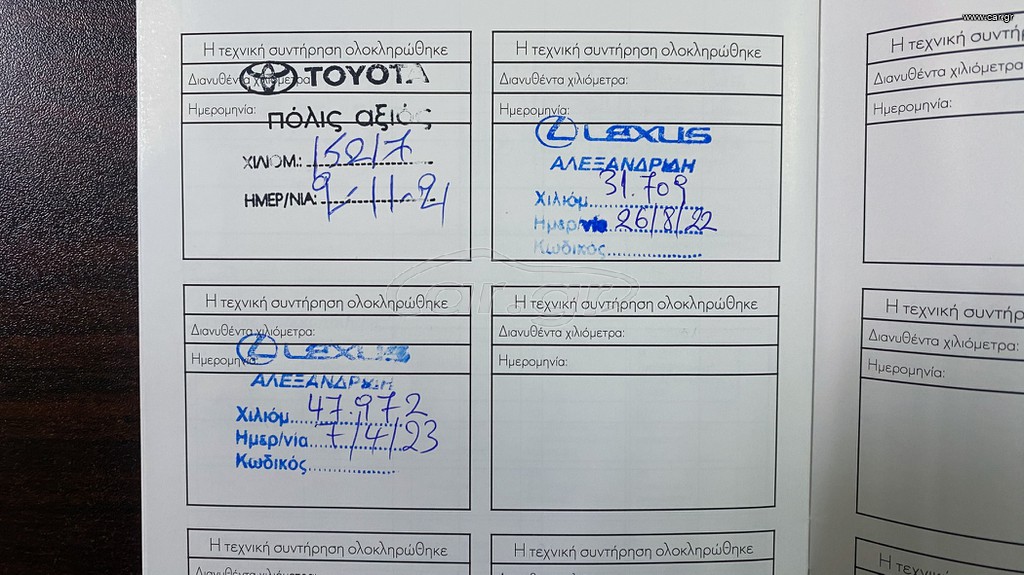 www.car.gr
Η τεχνική συντήρηση ολοκληρώθηκε
Διανυθέντα χιλιόμετρα:
TOYOTA
Ημερομηνία:
πόλις αξιός
ΧΙΛΙΟΜ.: 15217
ΗΜΕΡ/ΝΙΑ: 9-11-21
Η τεχνική συντήρηση ολοκληρώθηκε
Διανυθέντα χιλιόμετρα:
Ημερομηνία:
LEXUS
ΑΛΕΞΑΝΔΡΙΔΗ
Χιλιόμ. 31.709
Ημερ/νία 26/8/22
Κωδικός
Η τεχνική συντήρησ
Διανυθέντα χιλιόμετρα
Ημερομηνία:
Η τεχνική συντήρηση ολοκληρώθηκε
Διανυθέντα χιλιόμετρα:
Ημερομηνία:
LEXUS
ΑΛΕΞΑΝΔΡΙΔΗ
Χιλιόμ. 47.972
Ημερ/νία 7/4/23
Κωδικός
Η τεχνική συντήρηση ολοκληρώθηκε
Διανυθέντα χιλιόμετρα:
Ημερομηνία:
Η τεχνική συντήρ
Διανυθέντα χιλιόμετρα:
Ημερομηνία:
car.gr
Η τεχνική συντήρηση ολοκληρώθηκε
Η τεχνική συντήρηση ολοκληρώθηκε
Η τεχνική συντήρ